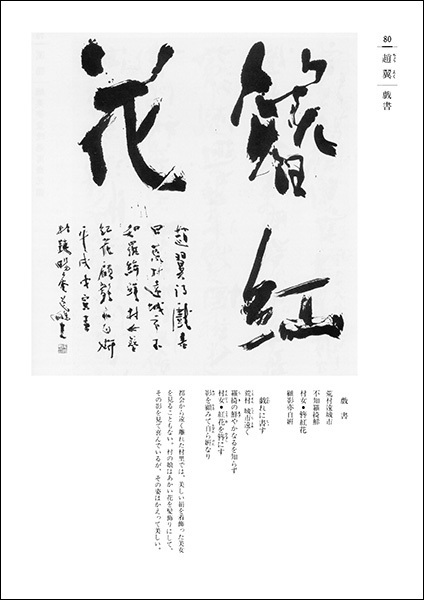 80
趙翼
戯書
簪紅
花
趙翼詩戯書
曰荒村遠城市不
知羅綺鮮村女簪
紅花顧影亦自妍
平成戊寅春
戯書
荒村遠城市
不知羅綺鮮
村女●簪紅花
顧影亦自妍
戯れに書す
荒村 城市遠く
羅綺の鮮やかなるを知らず
村女●紅花を簪にす
影を顧みて自ら妍なり
都会から遠く離れた村里では、美しい絹を着飾った美女
を見ることもない。村の娘はあかい花を髪飾りにして、
その影を見て喜んでいるが、その姿はかえって美しい。